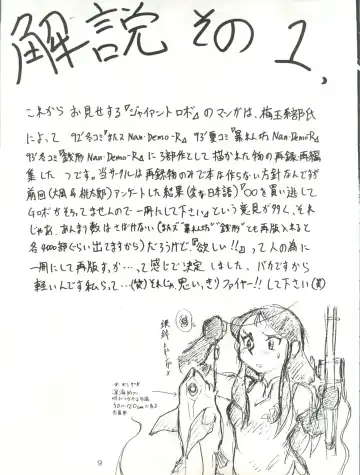 解説 その 1,
これから お見せする『ジャイアントロボ』のマンガは、梅玉奈部氏
によって 92'冬コミ『またス Nan-Demo-R』 93'夏コミ『暴れん坊 Nan-Demo-R』
93'冬コミ『銭形 Nan-Demo-R』に3部作として描かれた物の再録・再編
集した つです。当サークルは再録物のみで本は作らない方針なんですが
前回(大風&桃太郎)アンケートした結果(変な日本語)『〇〇を買い逃して
Gロボがそろってませんので一冊にして下さい』という意見が多く、それ
じゃあ、あんまり数はさばけない(またス"暴れん坊""銭形"とも再版入れると
各4000部くらい出てますから)だろうけど、『欲しい!!』って人の為に
一冊にして再版すっか…って感じで決定しました。バカですから
軽いんです私らって…(笑)それじゃ、思いっきりファイヤー!!して下さい(笑)
9